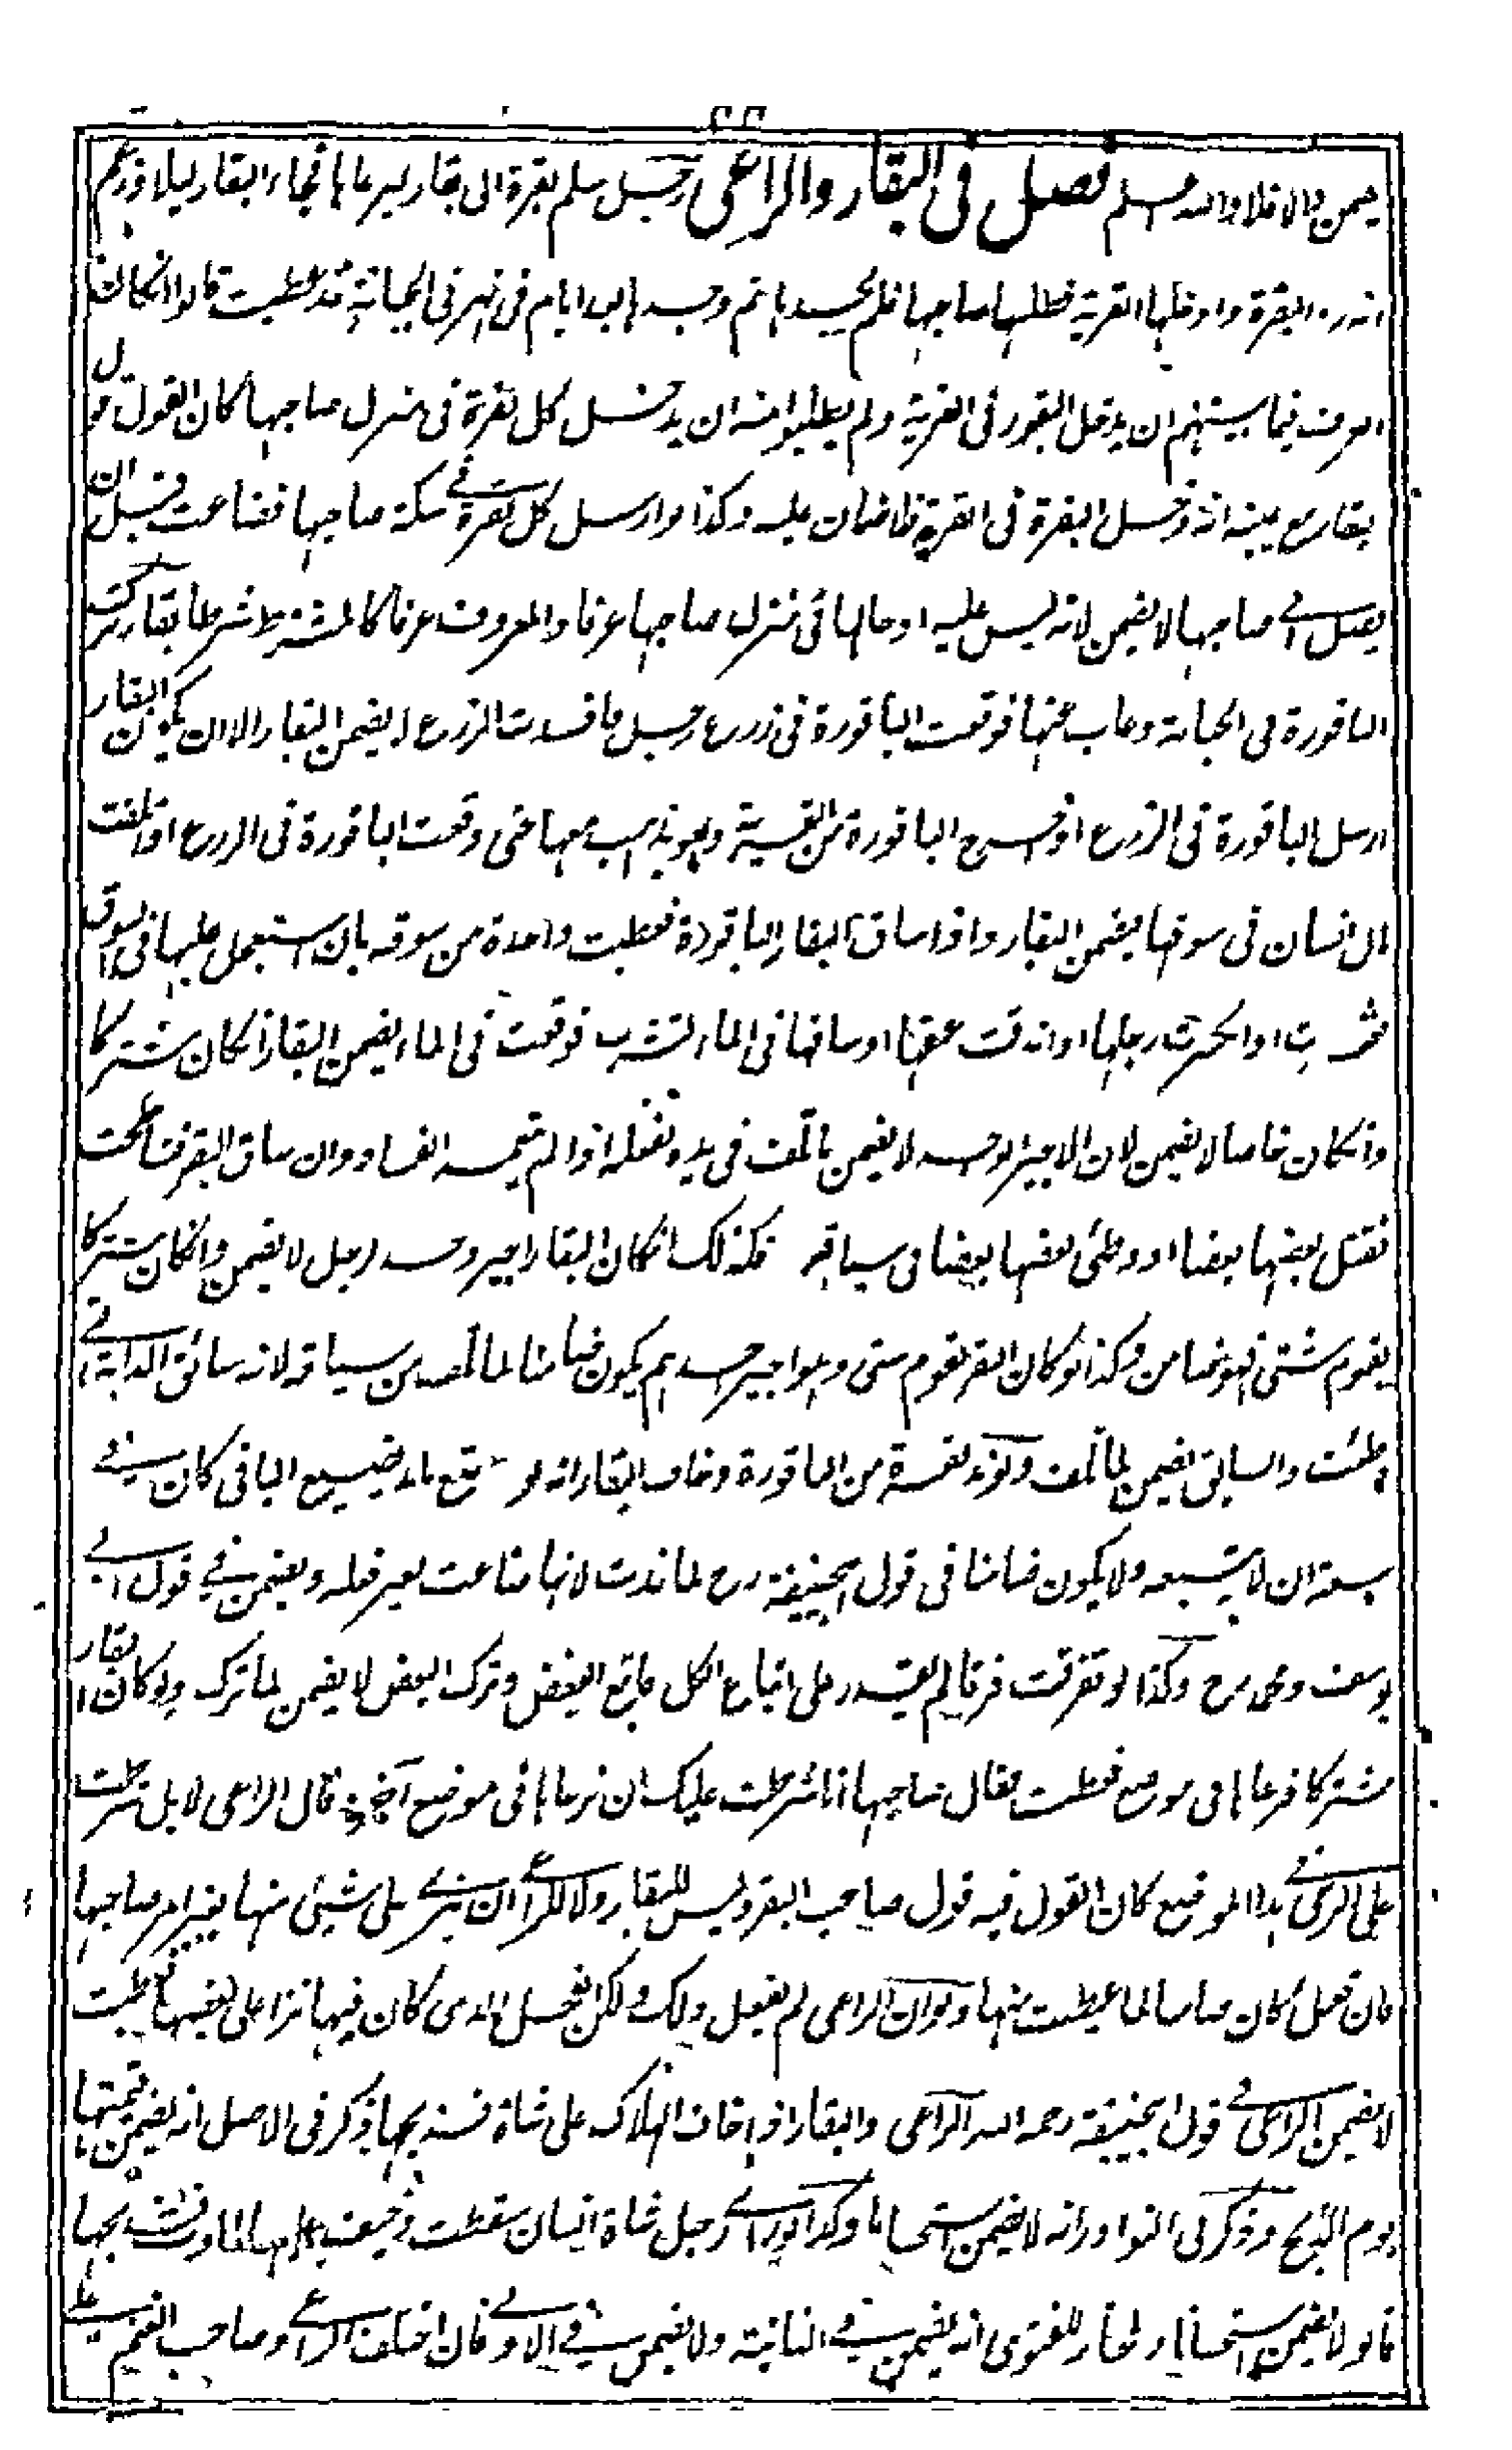 يضمن والا فلا والله اعلم فصل فى البقار والراعى رجل سلم بقرة الى بقار ليرعاها فجاء البقار ليلا وزعم
انه رد البقرة وادخلها القرية فطلبها صاحبها فلم يجدها ثم وجدها بعد ايام فى نهر فى الجبانة قد عطبت قالوا انكان
العرف فيما بينهم ان يدخل البقور فى القرية ولم يطلبوا منه ان يدخل كل بقرة فى منزل صاحبها كان القول قول
البقار مع يمينه انه ادخل البقرة فى القرية فلا ضمان عليه وكذا لو ارسل كل بقرة فى سكة صاحبها فضاعت قبل ان
يصل الى صاحبها لا يضمن لانه ليس عليه ادخالها فى منزل صاحبها عرفا والمعروف عرفا كالمشروط شرطا بقار ترك
الباقورة فى الجبانة وغاب عنها فوقعت الباقورة فى زرع رجل فافسدت الزرع لا يضمن البقار الا ان يكون البقار
ارسل الباقورة فى الزرع او اخرج الباقورة من القرية وهو يذهب معها حتى وقعت الباقورة فى الزرع او اتلفت
مال انسان فى سوقها يضمن البقار واذا ساق البقار الباقورة فعطبت واحدة من سوقه بان استعجل عليها فى السوق
فعثرت او انكسرت رجلها او اندقت عنقها او ساقها فى الماء لتشرب فوقعت فى الماء يضمن البقار انكان مشتركا
وانكان خاصا لا يضمن لان الاجير الوحد لا يضمن ما تلف فى يده بفعله اذا لم يتعمد الفساد وان ساق البقر فتناطحت
فقتل بعضها بعضا او وطئ بعضها بعضا فى سياقه فكذلك انكان البقار اجير وحد لرجل لا يضمن وانكان مشتركا
لقوم شتى فهو ضامن وكذا لو كان البقر لقوم شتى وهو اجير احدهم يكون ضامنا لما تلف من سياقه لانه سائق الدابة التى
وطئت والسائق يضمن ما تلف ولو ند بقرة من الباقورة وخاف البقار انه لو تبع ما ند يضيع الباقى كان فى
سعة ان لا يتبعه ولا يكون ضامنا فى قول ابيحنيفة رح لما ندت لانها ضاعت بغير فعله ويضمن فى قول ابى
يوسف ومحمد رح وكذا لو تفرقت فرقا لم يقدر على اتباع الكل فاتبع البعض وترك البعض لا يضمن لما ترك ولو كان البقار
مشتركا فرعاها فى موضع فعطبت فقال صاحبها انا شرطت عليك ان ترعاها فى موضع آخر وقال الراعى لا بل شرطت
على الرعى فى هذا الموضع كان القول فيه قول صاحب البقر وليس للبقار ولا للراعى ان ينزى على شيئ منها بغير امر صاحبها
فان فعل كان ضامنا لما عطبت منها ولو ان الراعى لم يفعل ذلك ولكن الفحل الذى كان فيها نزا على بعضها فعطبت
لا يضمن الراعى فى قول ابيحنيفة رحمه الله الراعى والبقار اذا خاف الهلاك على شاة فذبحها ذكر فى الاصل انه يضمن قيمتها
يوم الذبح وذكر فى النوادر انه لا يضمن استحسانا وكذا لو رأى رجل شاة انسان سقطت وخيف عليها الموت فذبحها
قالوا لا يضمن استحسانا والمختار للفتوى انه يضمن فى الثانية ولا يضمن فى الاولى فان اختلف الراعى وصاحب الغنم فى